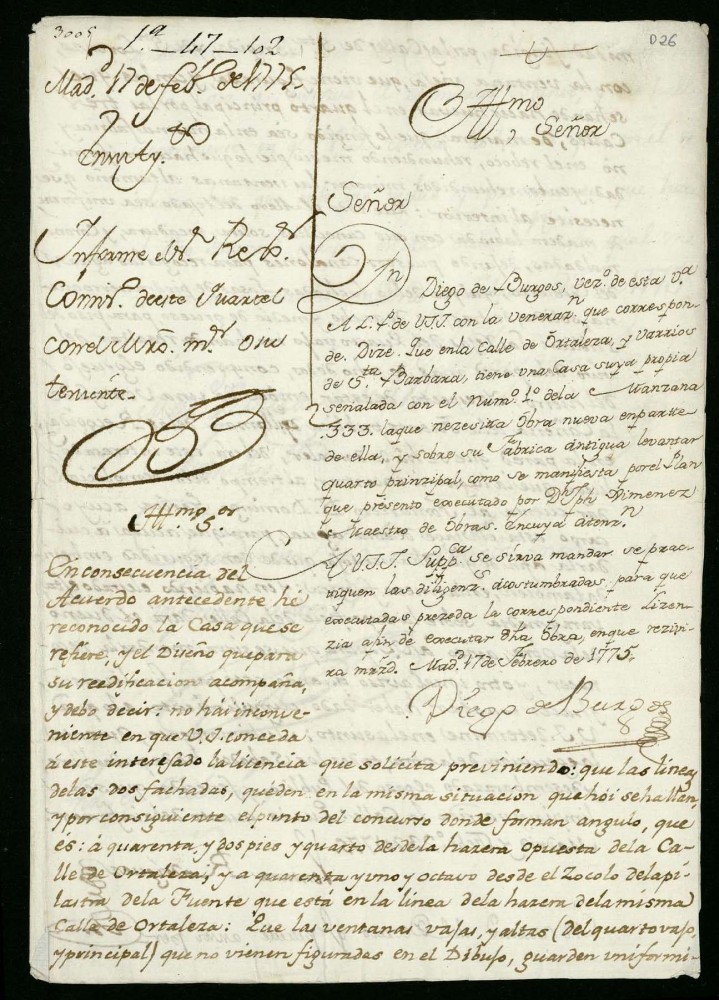 3005
1.ª_47_102
D26
Mad.d 17 de feb.º de 1775.
Informe el S.r Reb.r
Comis.º de este Quartel
con el Mro. m.r o su
teniente.
Ill.mo s.or
En consecuencia del
Acuerdo antecedente hé
reconocido la Casa que se
refiere, y el Diseño que para
su reedificacion acompaña,
y debo decir: no hái inconve-
niente en que V.I. conceda
á este interesado la licencia que solicita previniendo: que las lineas
delas dos fachadas, quéden en la misma situacion que hoi se hallan,
y por consiguiente el punto del concurso donde forman angulo, que
es: á quarenta, y dos pies y quarto desde la hazera opuesta de la Ca-
lle de Ortaleza, y a quarenta y uno y octavo desde el Zocolo de la pi-
lastra de la Fuente que está en la linea de la hazera de la misma
Calle de Ortaleza: Que las ventanas vajas, y altas (del quarto vajo,
y principal) que no vienen figuradas en el Dibujo, guarden uniformi-
Ill.mo
Señor
Señor
Dn Diego de Burgos, vez.º de esta V.ª
A L. P. de V.S.I. con la veneraz.n que correspon-
de. Dize. Que en la Calle de Ortaleza, y Varrios
de S.ta Barbara, tiene una Casa suya propia
señalada con el Num.º 1.º de la Manzana
.333. la que nezesita Obra nueva en partte
de ella, y sobre su fabrica antigua levantar
quarto prinzipal, como se manifiesta por el Plan
que presento executado por D.n Jph Ximenez
Maestro de Obras. En cuya atenz.n
A V.S.I. Supp.ca se sirva mandar se prac-
tiquen las diligenz.s acostumbradas para que
executadas prezeda la correspondiente Lizen-
zia a fin de executar dha Obra, en que rezivi-
ra mrzd. Mad.d 17 de Febrero de 1775.
Diego de Burgos